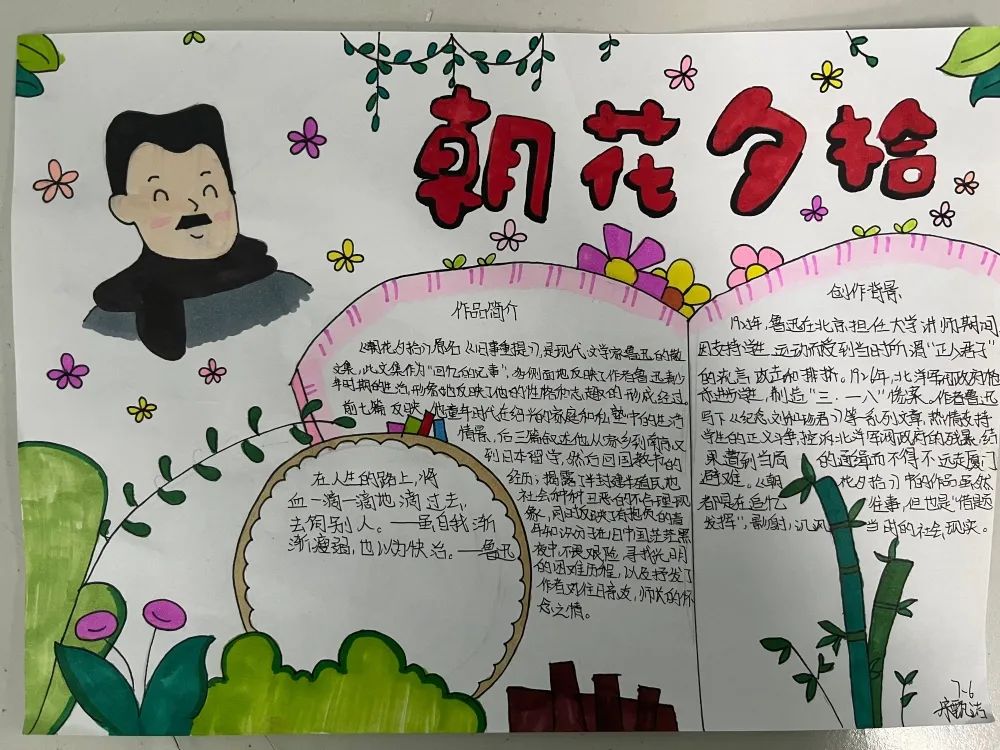 朝花夕拾
作品简介
《朝花夕拾》原名《旧事重提》,是现代文学家鲁迅的散
文集,此文集作为"回忆的记事",多侧面地反映了作者鲁迅青少
年时期的生活,形象地反映了他的性格和志趣的形成经过。
前七篇反映他童年时代在绍兴的家庭和私塾中的生活
情景,后三篇叙述他从家乡到南京又
到日本留学,然后回国教书的
经历;揭露了半封建半殖民地
社会种种丑恶的不合理现
象,同时反映了有抱负的青
年知识分子在旧中国茫茫黑
夜中,不畏艰险,寻找光明
的困难历程,以及抒发了
作者对往日亲友,师长的怀
念之情。
创作背景
鲁迅在北京担任大学讲师期间
因支持学生运动而受到当时所谓"正人君子"
的流言攻击和排挤。1926年,北洋军阀政府枪
杀进步学生,制造"三·一八"惨案。作者鲁迅
写下《纪念刘和珍君》等一系列文章,热情支持
学生的正义斗争,控诉北洋军阀政府的残暴,结
果遭到当局的通缉而不得不远走厦门
避难。《朝花夕拾》中的作品虽然
都是在追忆往事,但也是"借题
发挥",影射,讽当时的社会现实。
在人生的路上,将
血一滴一滴地滴过去,
去饲别人。——虽自我渐
渐瘦弱,也以为快活。——鲁迅
7-6